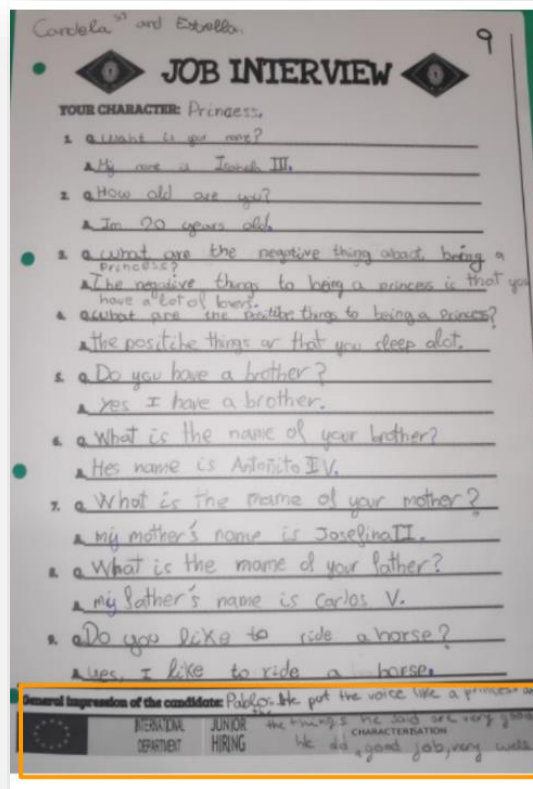 Candela and Estrella.
9
JOB INTERVIEW
YOUR CHARACTER: Princess.
1. Q. Want is your name?
A. My name is III.
2. Q. How old are you?
A. Im 20 years old.
3. Q. what are the negative thing about, being a
princess?
A. The negative things to being a princess is that you
have a lot of
4. Q. what are the positibe things to being a princes?
A. the positibe things ar that you sleep alot.
5. Q. Do you have a brother?
A. yes I have a brother.
6. Q. What is the name of your brother?
A. Hes name is Antoñito IV.
7. Q. What is the mame of your mother?
A. my mother's name is Josefina II.
8. Q. What is the mame of your father?
A. my father's name is Carlos V.
9. Q. Do you like to ride a horse?
A. yes, I like to ride a horse.
General impression of the candidate: Pablo: He put the voice like a princess and
INTERNATIONAL DEPARTMENT
JUNIOR HIRING
the things he said are very good
CHARACTERISATION
He did good job, very well